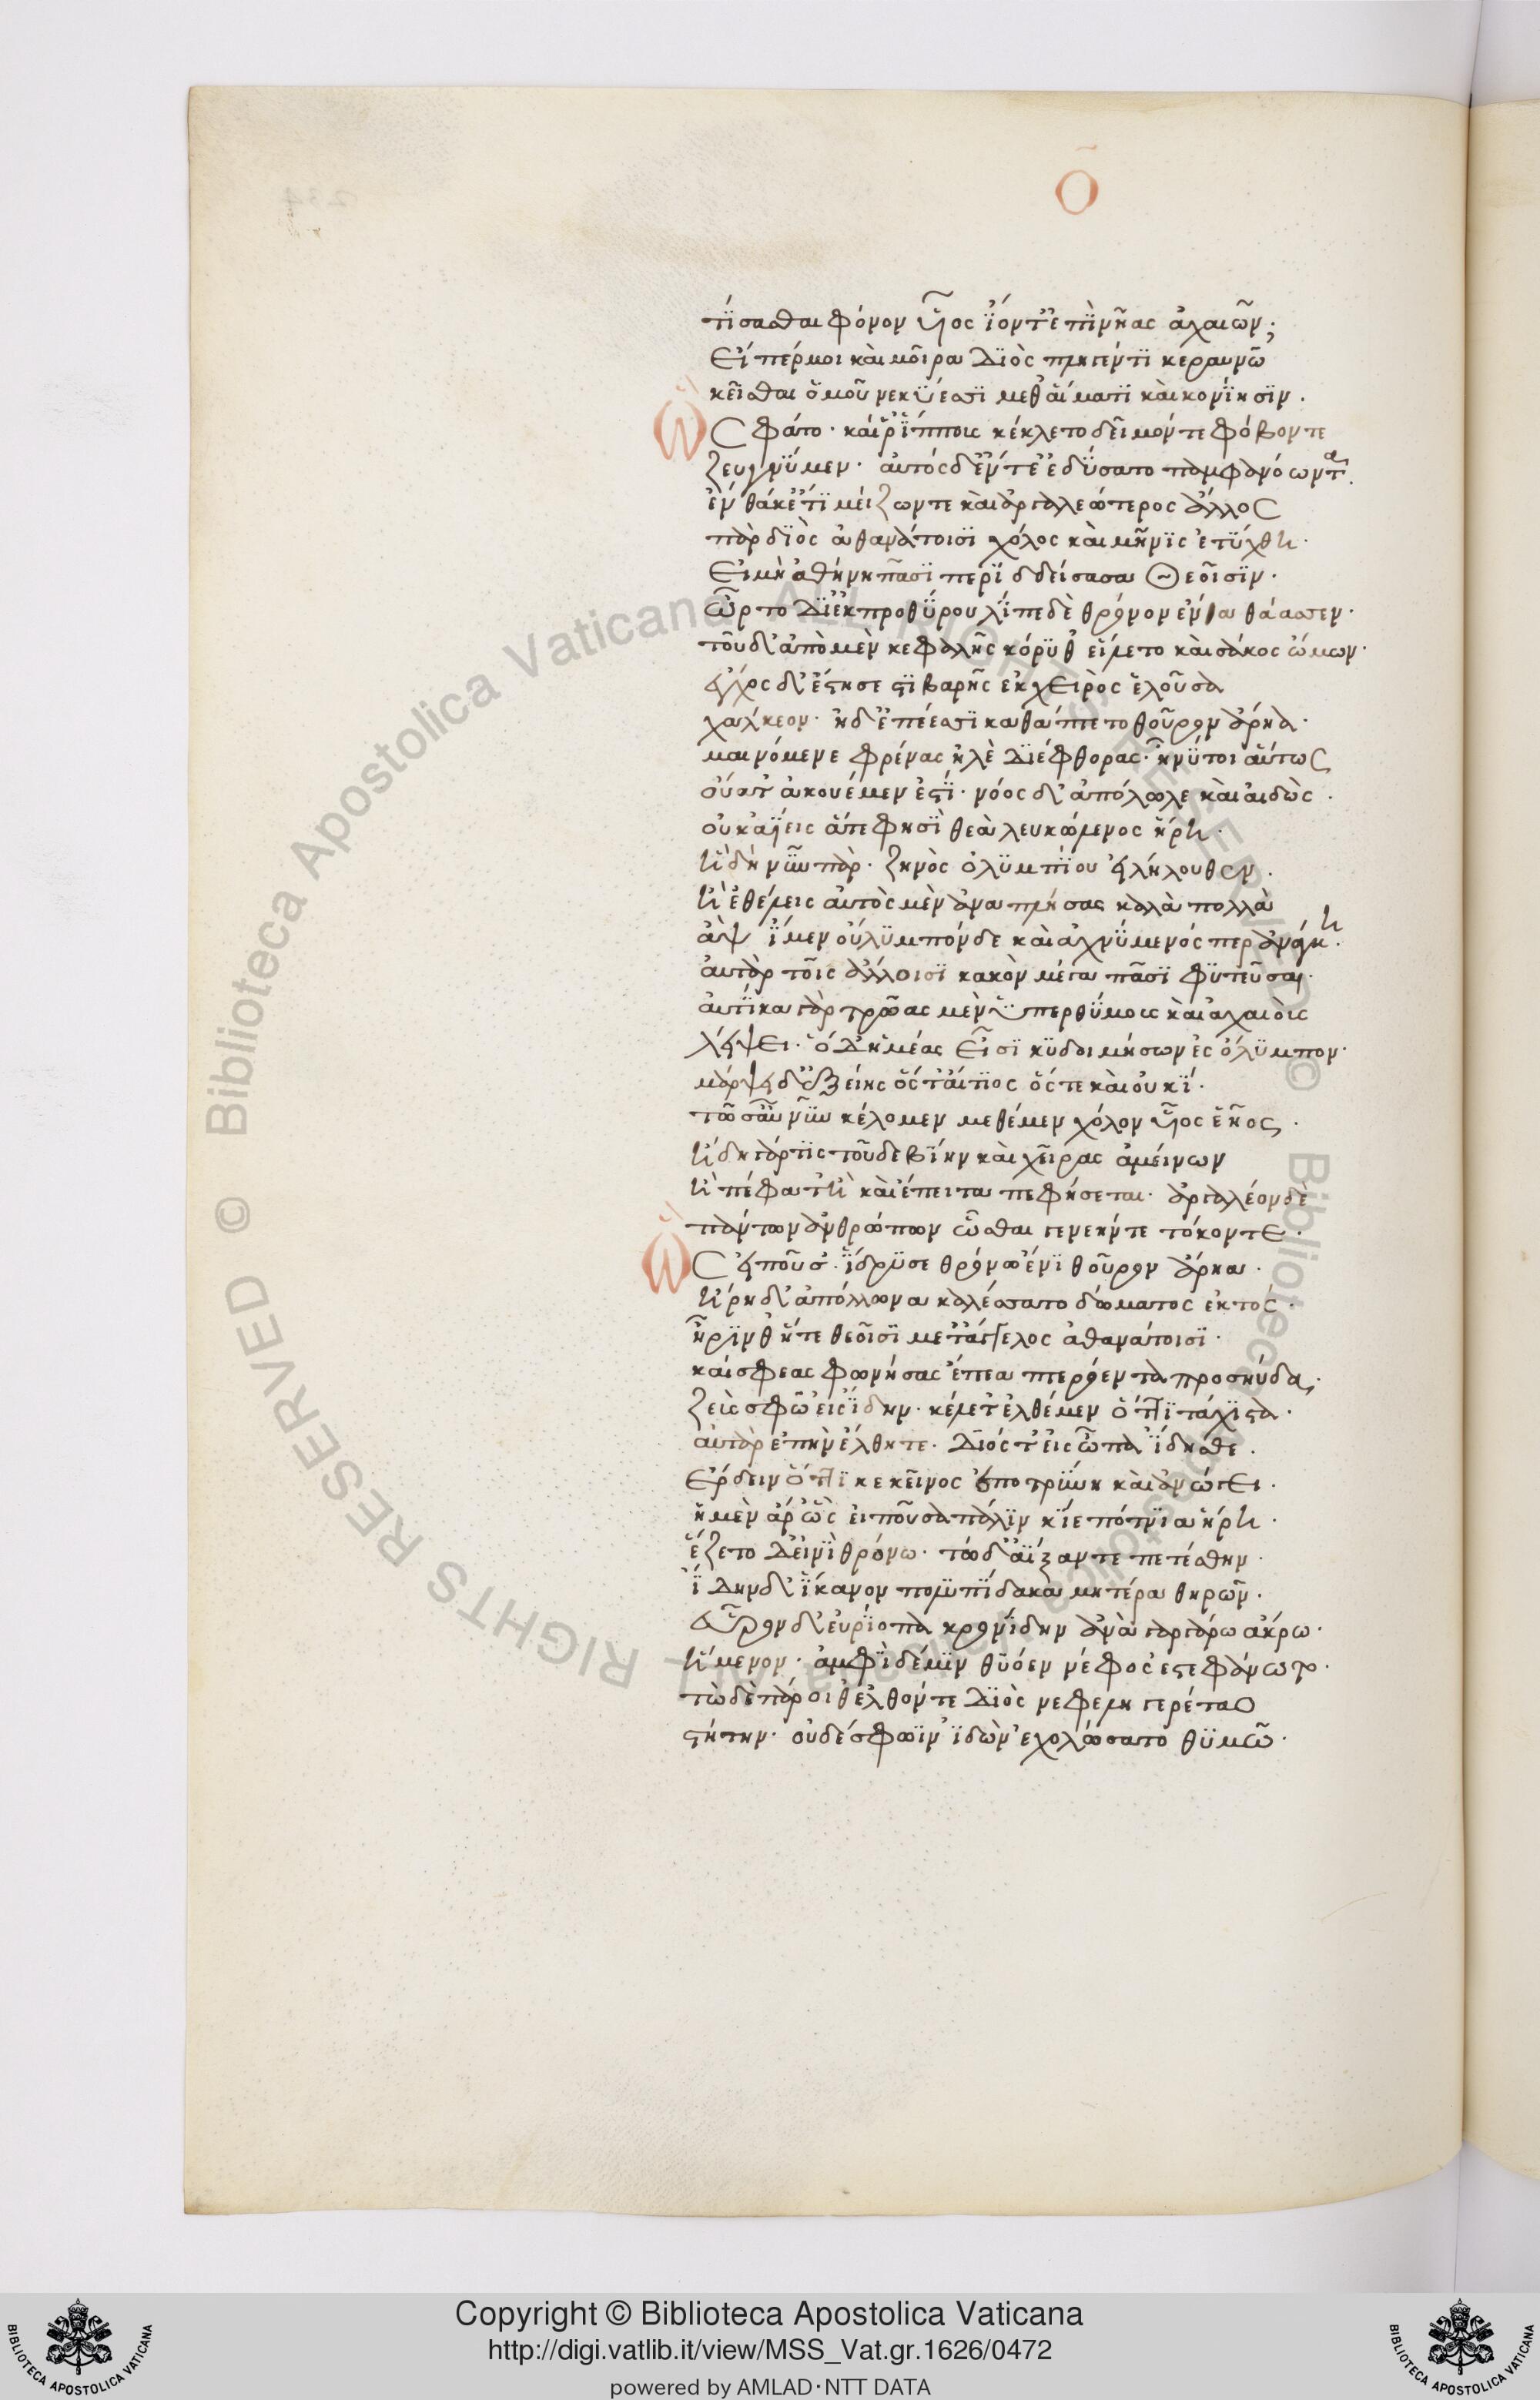 Ο
τίσασθαι φόνον υἷος ἰόντ' ἐπὶ νῆας ἀχαιῶν;
Εἴ πέρ μοι καὶ μοῖρα Διὸς πληγέντι κεραυνῶ
κεῖσθαι ὁμοῦ νεκύεσσι μεθ' αἵματι καὶ κονίησιν.
Ὣς φάτο· καί ῥ' ἵππους κέκλετο δεῖμόν τε φόβον τε
ζευγνύμεν· αὐτὸς δ' ἔντε' ἐδύσατο παμφανόωντα.
ἔνθά κ' ἔτι μείζων τε καὶ ἀργαλεώτερος ἄλλος
πὰρ διὸς ἀθανάτοισι χόλος καὶ μῆνις ἐτύχθη·
Εἰ μὴ ἀθήνη πᾶσι περὶ δδείσασα Θεοῖσιν·
ὦρτο Διὲκ προθύρου λίπε δὲ θρόνον ἔνθα θάασσεν·
τοῦ δ' ἀπὸ μὲν κεφαλῆς κόρυθ' εἵλετο καὶ σάκος ὤμων·
ἔγχος δ' ἔστησε στιβαρῆς ἐκ χειρὸς ἑλοῦσα
χάλκεον· ἡ δ' ἐπέεσσι καθάπτετο θοῦρον ἄρηα·
μαινόμενε φρένας ἠλὲ Διέφθορας· ἦ νύ τοι αὔτως
οὔατ' ἀκουέμεν ἐστί· νόος δ' ἀπόλωλε καὶ αἰδώς.
οὐκ ἀΐεις ἅ τε φησὶ θεὰ λευκώλενος ἥρη·
ἣ δὴ νῦν πὰρ· ζηνὸς ὀλυμπίου εἰλήλουθεν.
ἢ ἐθέλεις αὐτὸς μὲν ἀναπλήσας κακὰ πολλὰ
ἂψ ἴμεν οὔλυμπόνδε καὶ ἀχνύμενός περ ἀνάγκη.
αὐτὰρ τοῖς ἄλλοισι κακὸν μέγα πᾶσι φυτεῦσαι·
αὐτίκα γὰρ τρῶας μὲν ὑπερθύμους καὶ ἀχαιοὺς
λείψει· ὃ Δ' ἡμέας εἶσι κυδοιμήσων ἐς ὄλυμπον·
μάρψει δ' ἑξείης ὅς τ' αἴτιος ὅς τε καὶ οὐκί·
τῶ σ' αὖ νῦν κέλομεν μεθέμεν χόλον υἷος ἑῆος.
ἤδη γάρ τις τοῦ δε βίην καὶ χεῖρας ἀμείνων
ἢ πέφατ' ἢ καὶ ἔπειτα πεφήσεται· ἀργαλέον δὲ
πάντων ἀνθρώπων ῥῦσθαι γενεήν τε τόκον τε·
Ὣς εἰποῦσ'· ἵδρυσε θρόνω ἔνι θοῦρον ἄρηα·
ἥρη δ' ἀπόλλωνα καλέσσατο δώματος ἐκτός·
ἦριν θ' ἥ τε θεοῖσι μετάγγελος ἀθανάτοισι·
καί σφεας φωνήσασ' ἔπεα πτερόεντα προσηύδα·
Ζεὺς σφῶ εἰς ἴδην· κέλετ' ἐλθέμεν ὅττι τάχιστα·
αὐτὰρ ἐπὴν ἔλθητε· Διός τ' εἰς ὦπα ἴδησθε.
Ἔρδειν ὅττι κε κεῖνος ἐποτρύνη καὶ ἀνώγει·
ἣ μὲν ἄρ' ὣς εἰποῦσα πάλιν κίε πότνια ἥρη·
ἕζετο Δ' εἰνὶ θρόνω· τὼ δ' ἀΐξαντε πετέσθην·
ἴΔην δ' ἵκανον πολυπίδακα μητέρα θηρῶν·
εὗρον δ' εὐρύοπα κρονίδην ἀνὰ γαργάρω ἄκρω·
ἥμενον· ἀμφὶ δέ μιν θυόεν νέφος ἐστεφάνωτο·
τὼ δὲ πάροιθ' ἐλθόντε Διὸς νεφεληγερέταο
στήτην· οὐδέ σφωϊν ἰδὼν ἐχολώσατο θυμῶ·
Copyright © Biblioteca Apostolica Vaticana
http://digi.vatlib.it/view/MSS_Vat.gr.1626/0472
powered by AMLAD·NTT DATA